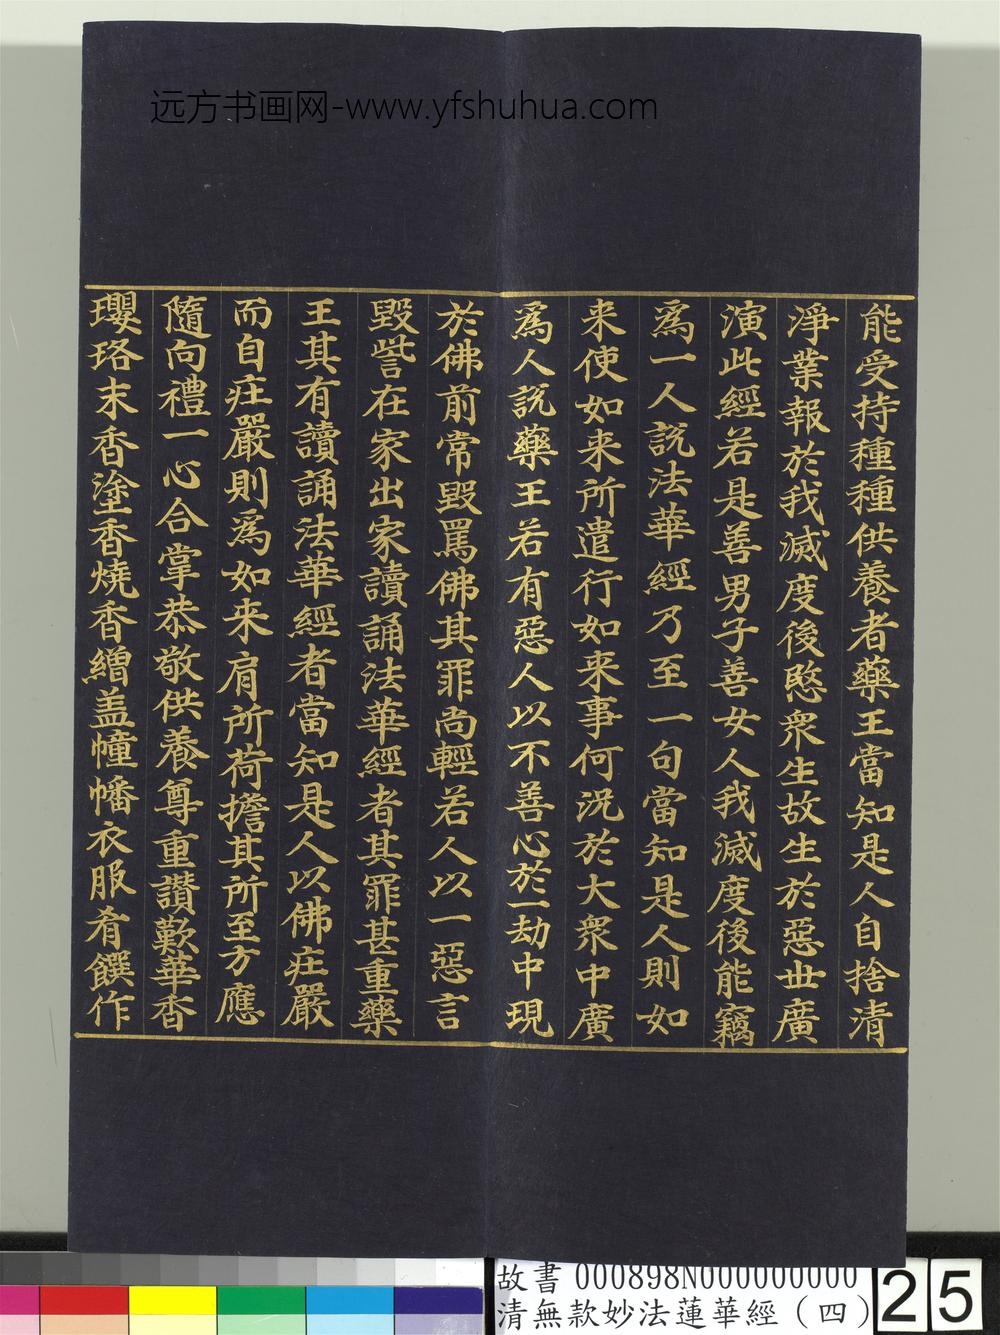 远方书画网-www.yfshuhua.com
能受持種種供養者藥王當知是人自捨清
淨業報於我滅度後愍衆生故生於惡世廣
演此經若是善男子善女人我滅度後能竊
爲一人說法華經乃至一句當知是人則如
来使如来所遣行如来事何況於大衆中廣
爲人說藥王若有惡人以不善心於一劫中現
於佛前常毀罵佛其罪尚輕若人以一惡言
毀訾在家出家讀誦法華經者其罪甚重藥
王其有讀誦法華經者當知是人以佛莊嚴
而自莊嚴則爲如来肩所荷擔其所至方應
隨向禮一心合掌恭敬供養尊重讚歎華香
瓔珞末香塗香燒香繒盖幢幡衣服肴饌作
故書 000898N000000000
清無款妙法蓮華經（四）
25